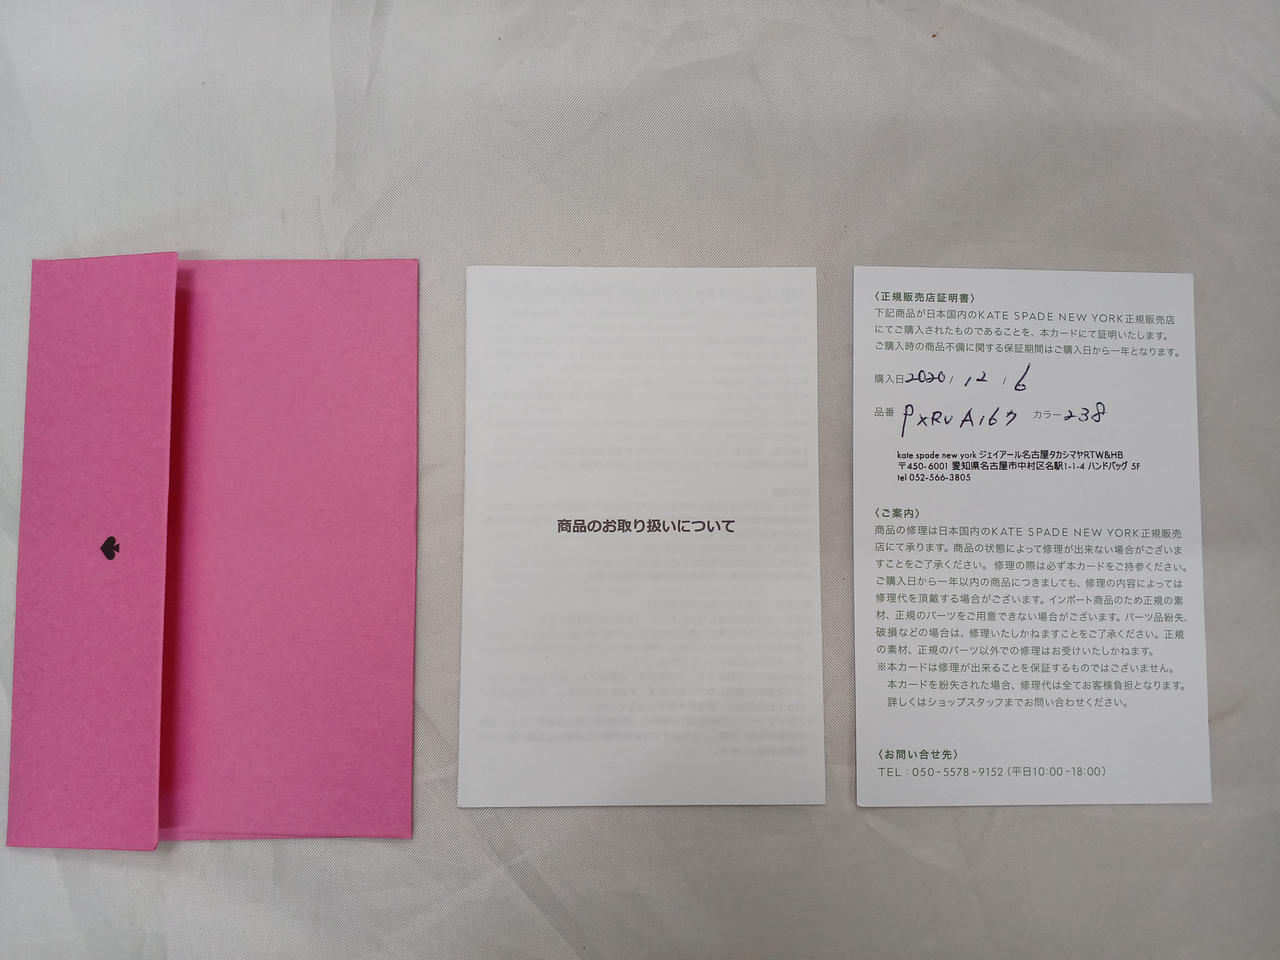 商品のお取り扱いについて
〈正規販売店証明書〉
下記商品が日本国内のKATE SPADE NEW YORK正規販売店
にてご購入されたものであることを、本カードにて証明いたします。
ご購入時の商品不備に関する保証期間はご購入日から一年となります。
購入日 2020 / 12 / 6
品番 PXRUA167 カラー 238
kate spade new york ジェイアール名古屋タカシマヤRTW&HB
〒450-6001 愛知県名古屋市中村区名駅1-1-4 ハンドバッグ 5F
tel 052-566-3805
〈ご案内〉
商品の修理は日本国内のKATE SPADE NEW YORK正規販売
店にて承ります。商品の状態によって修理が出来ない場合がございま
すことをご了承ください。修理の際は必ず本カードをご持参ください。
ご購入日から一年以内の商品につきましても、修理の内容によっては
修理代を頂戴する場合がございます。インポート商品のため正規の素
材、正規のパーツをご用意できない場合がございます。パーツ品紛失、
破損などの場合は、修理いたしかねますことをご了承ください。正規
の素材、正規のパーツ以外での修理はお受けいたしかねます。
※本カードは修理が出来ることを保証するものではございません。
本カードを紛失された場合、修理代は全てお客様負担となります。
詳しくはショップスタッフまでお問い合わせください。
〈お問い合せ先〉
TEL：050-5578-9152（平日10:00-18:00）